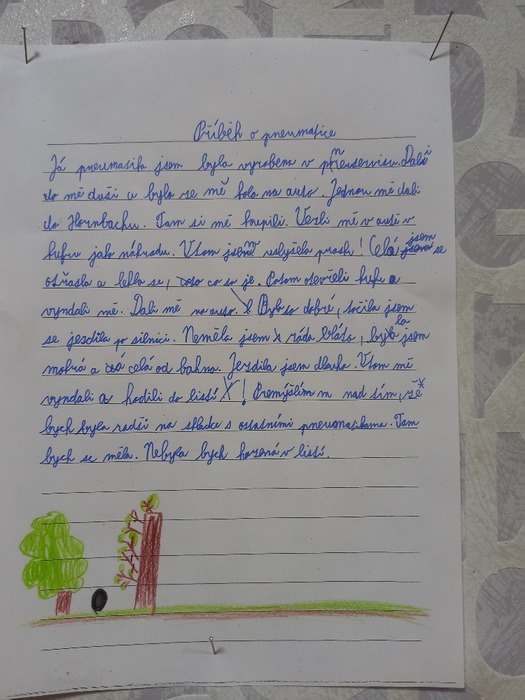 Příběh o pneumatice
Já pneumatika jsem byla vyrobena v pneuservisu. Dali
do mě duši a bylo ze mě kolo na auto. Jednou mě dali
do Hornbachu. Tam si mě koupili. Vezli mě v autě v
kufru jako náhradu. Vtom jsem uslyšela prask! Celá jsem se
otřásla a lekla se, co se je. Potom otevřeli kufr a
vyndali mě. Dali mě na auto. Bylo to dobré, točila jsem
se jezdila po silnici. Neměla jsem ráda bláto, byla jsem
mokrá a celá od bahna. Jezdila jsem dlouho. Vtom mě
vyndali a hodili do listí! Přemýšlím nad tím, že
bych byla radši na skládce s ostatními pneumatikama. Tam
bych se měla. Nebyla bych hozená v listí.